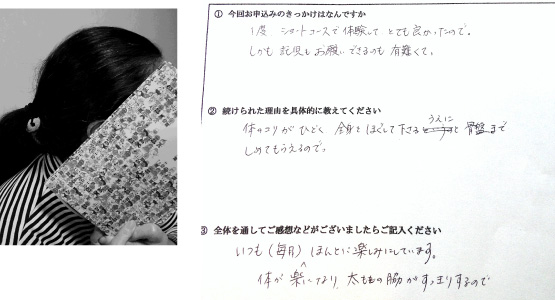 ① 今回お申込みのきっかけはなんですか
1度 ショートコースで体験して とても良かったので。
しかも 託児も お願いできるのも 有難くて。
② 続けられた理由を具体的に教えてください
体のコリが ひどく 全身を ほぐして下さる うえに 骨盤まで
しめてもらえるので。
③ 全体を通してご感想などがございましたらご記入ください
いつも（毎月）ほんとに楽しみにしています。
体が 楽になり 太ももの脇が すっきりするので